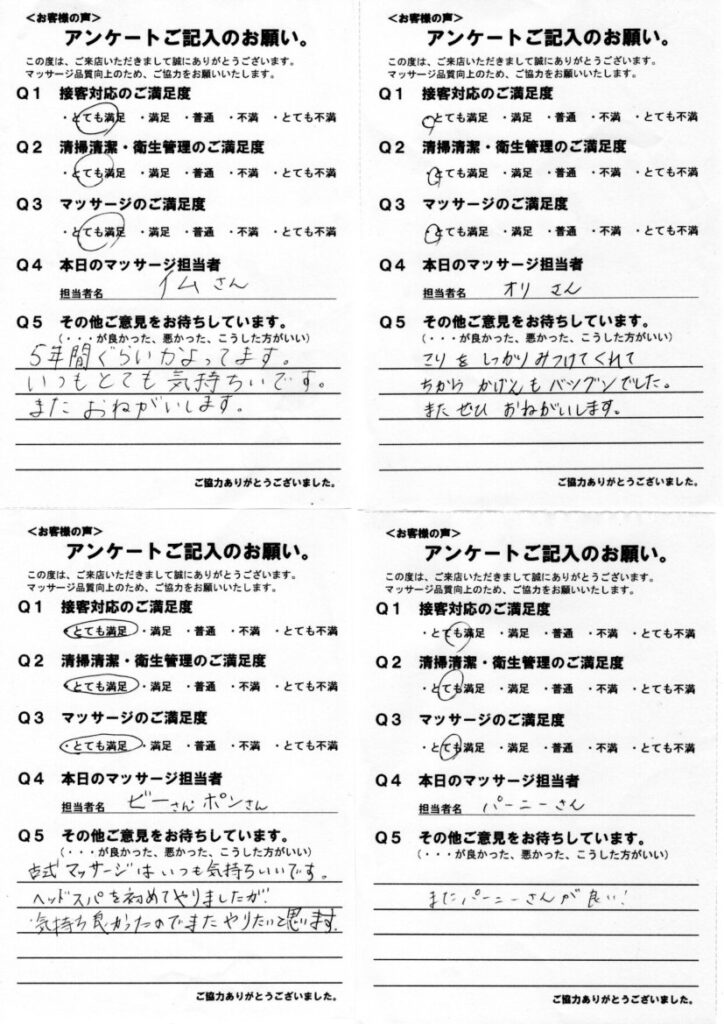 <お客様の声>
アンケートご記入のお願い。
この度は、ご来店いただきまして誠にありがとうございます。
マッサージ品質向上のため、ご協力をお願いいたします。
Q1 接客対応のご満足度
・とても満足 ・満足 ・普通 ・不満 ・とても不満
Q2 清掃清潔・衛生管理のご満足度
・とても満足 ・満足 ・普通 ・不満 ・とても不満
Q3 マッサージのご満足度
・とても満足 ・満足 ・普通 ・不満 ・とても不満
Q4 本日のマッサージ担当者
担当者名 イムさん
Q5 その他ご意見をお待ちしています。
(・・・が良かった、悪かった、こうした方がいい)
5年間ぐらいかよってます。
いつもとても気持ちいです。
また おねがいします。
ご協力ありがとうございました。
<お客様の声>
アンケートご記入のお願い。
この度は、ご来店いただきまして誠にありがとうございます。
マッサージ品質向上のため、ご協力をお願いいたします。
Q1 接客対応のご満足度
・とても満足 ・満足 ・普通 ・不満 ・とても不満
Q2 清掃清潔・衛生管理のご満足度
・とても満足 ・満足 ・普通 ・不満 ・とても不満
Q3 マッサージのご満足度
・とても満足 ・満足 ・普通 ・不満 ・とても不満
Q4 本日のマッサージ担当者
担当者名 オリ さん
Q5 その他ご意見をお待ちしています。
(・・・が良かった、悪かった、こうした方がいい)
こりを しっかりみつけてくれて
ちから かげんも バツグンでした。
また ぜひ おねがいします。
ご協力ありがとうございました。
<お客様の声>
アンケートご記入のお願い。
この度は、ご来店いただきまして誠にありがとうございます。
マッサージ品質向上のため、ご協力をお願いいたします。
Q1 接客対応のご満足度
・とても満足 ・満足 ・普通 ・不満 ・とても不満
Q2 清掃清潔・衛生管理のご満足度
・とても満足 ・満足 ・普通 ・不満 ・とても不満
Q3 マッサージのご満足度
・とても満足 ・満足 ・普通 ・不満 ・とても不満
Q4 本日のマッサージ担当者
担当者名 ビーさん ポンさん
Q5 その他ご意見をお待ちしています。
(・・・が良かった、悪かった、こうした方がいい)
古式マッサージはいつも気持ちいいです。
ヘッドスパを初めてやりましたが
気持ち良かったのでまたやりたいと思います。
ご協力ありがとうございました。
<お客様の声>
アンケートご記入のお願い。
この度は、ご来店いただきまして誠にありがとうございます。
マッサージ品質向上のため、ご協力をお願いいたします。
Q1 接客対応のご満足度
・とても満足 ・満足 ・普通 ・不満 ・とても不満
Q2 清掃清潔・衛生管理のご満足度
・とても満足 ・満足 ・普通 ・不満 ・とても不満
Q3 マッサージのご満足度
・とても満足 ・満足 ・普通 ・不満 ・とても不満
Q4 本日のマッサージ担当者
担当者名 パーニーさん
Q5 その他ご意見をお待ちしています。
(・・・が良かった、悪かった、こうした方がいい)
またパーニーさんが良い!
ご協力ありがとうございました。